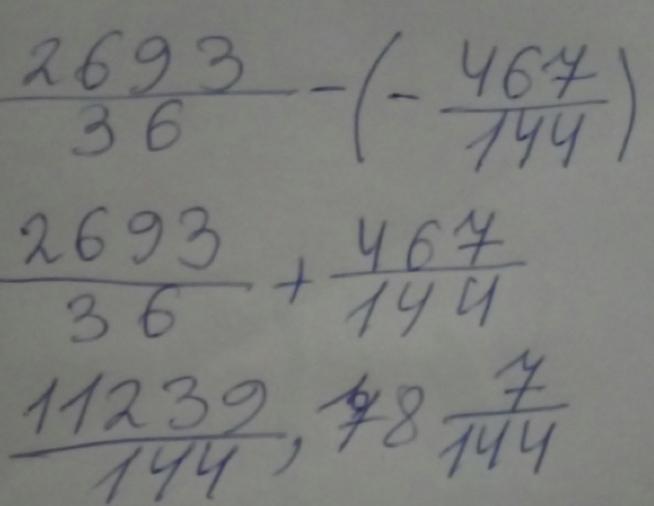 2693/36 - (- 467/144)
2693/36 + 467/144
11239/144, 78 7/144